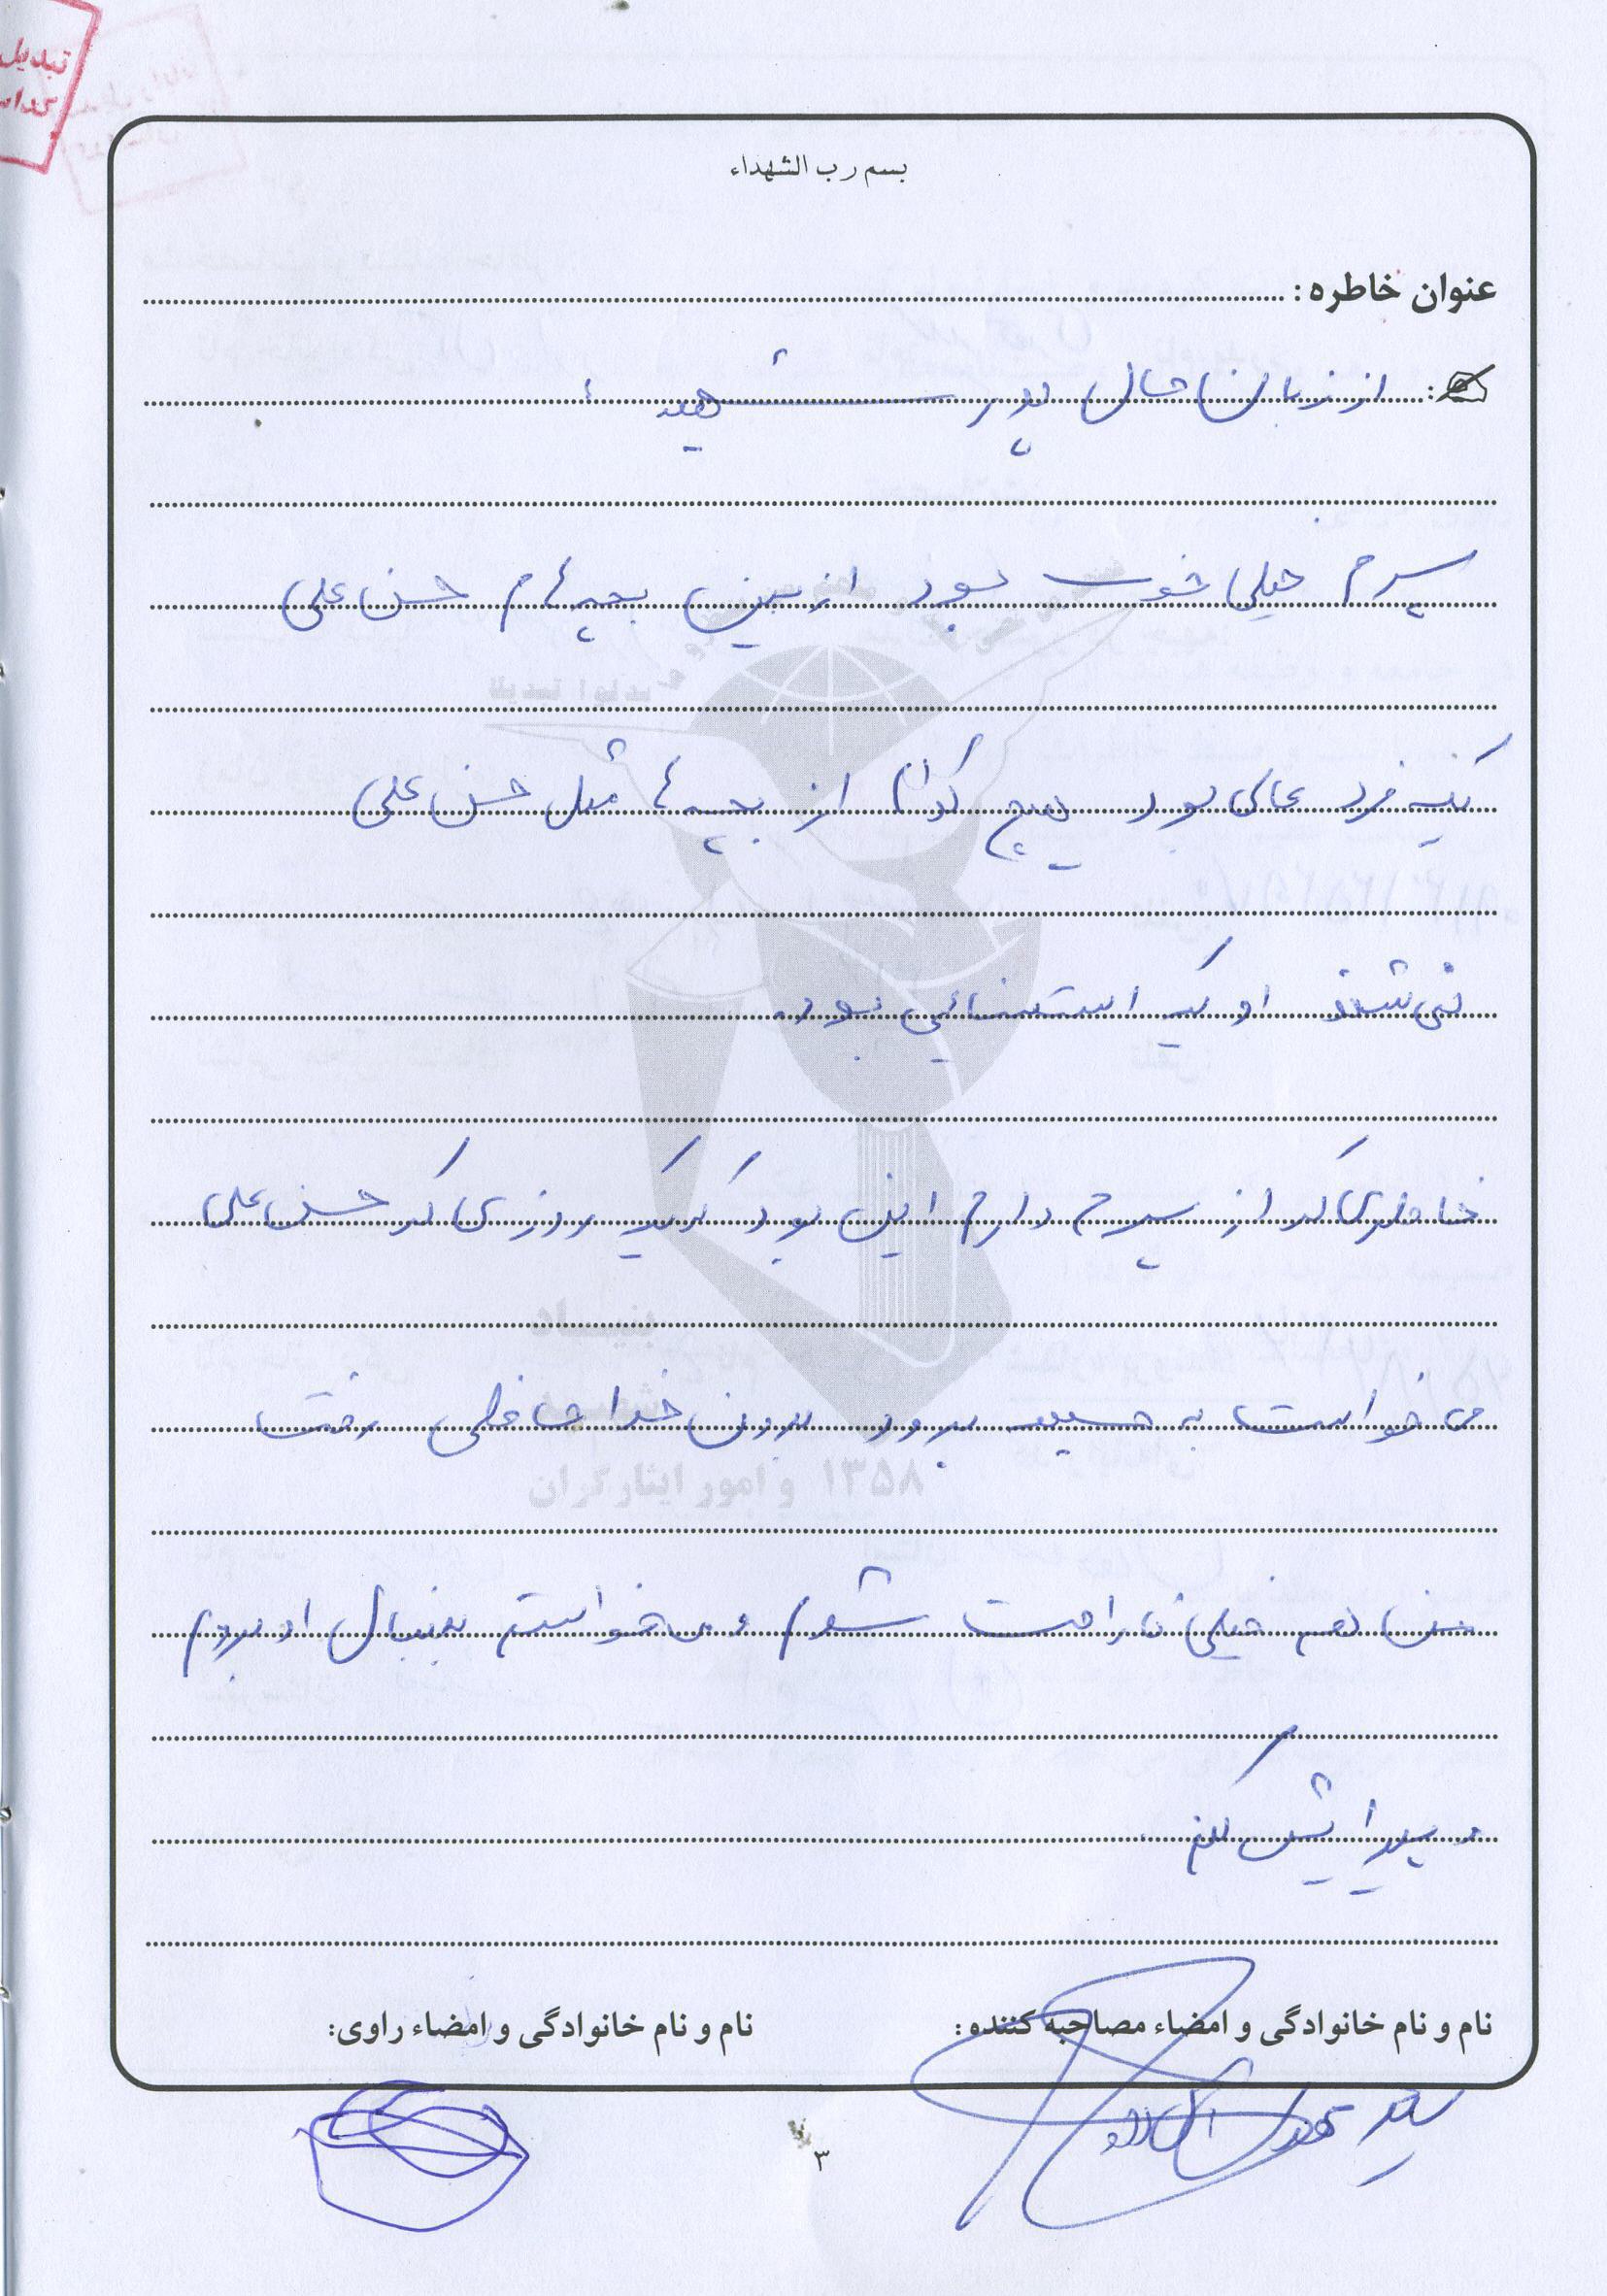 تبدیل
بسم رب الشهداء
عنوان خاطره :
از زبان حال پدر شهید :
پسرم خیلی خوب بود از بین بچه هام حسن علی
یک فرد عالی بود هیچ کدام از بچه ها مثل حسن علی
نمی شدند او یک استثنائی بود.
خاطره‌ای که از پسرم دارم این بود که یک روزی که حسن علی
می خواست به جبهه برود بدون خدا حافظی رفت
من هم خیلی ناراحت شدم و می خواستم بدنبال او بروم
و پیدایش کنم
بنیاد
شهید
۱۳۵۸ و امور ایثارگران
نام و نام خانوادگی و امضاء مصاحبه کننده :
نام و نام خانوادگی و امضاء راوی:
۳